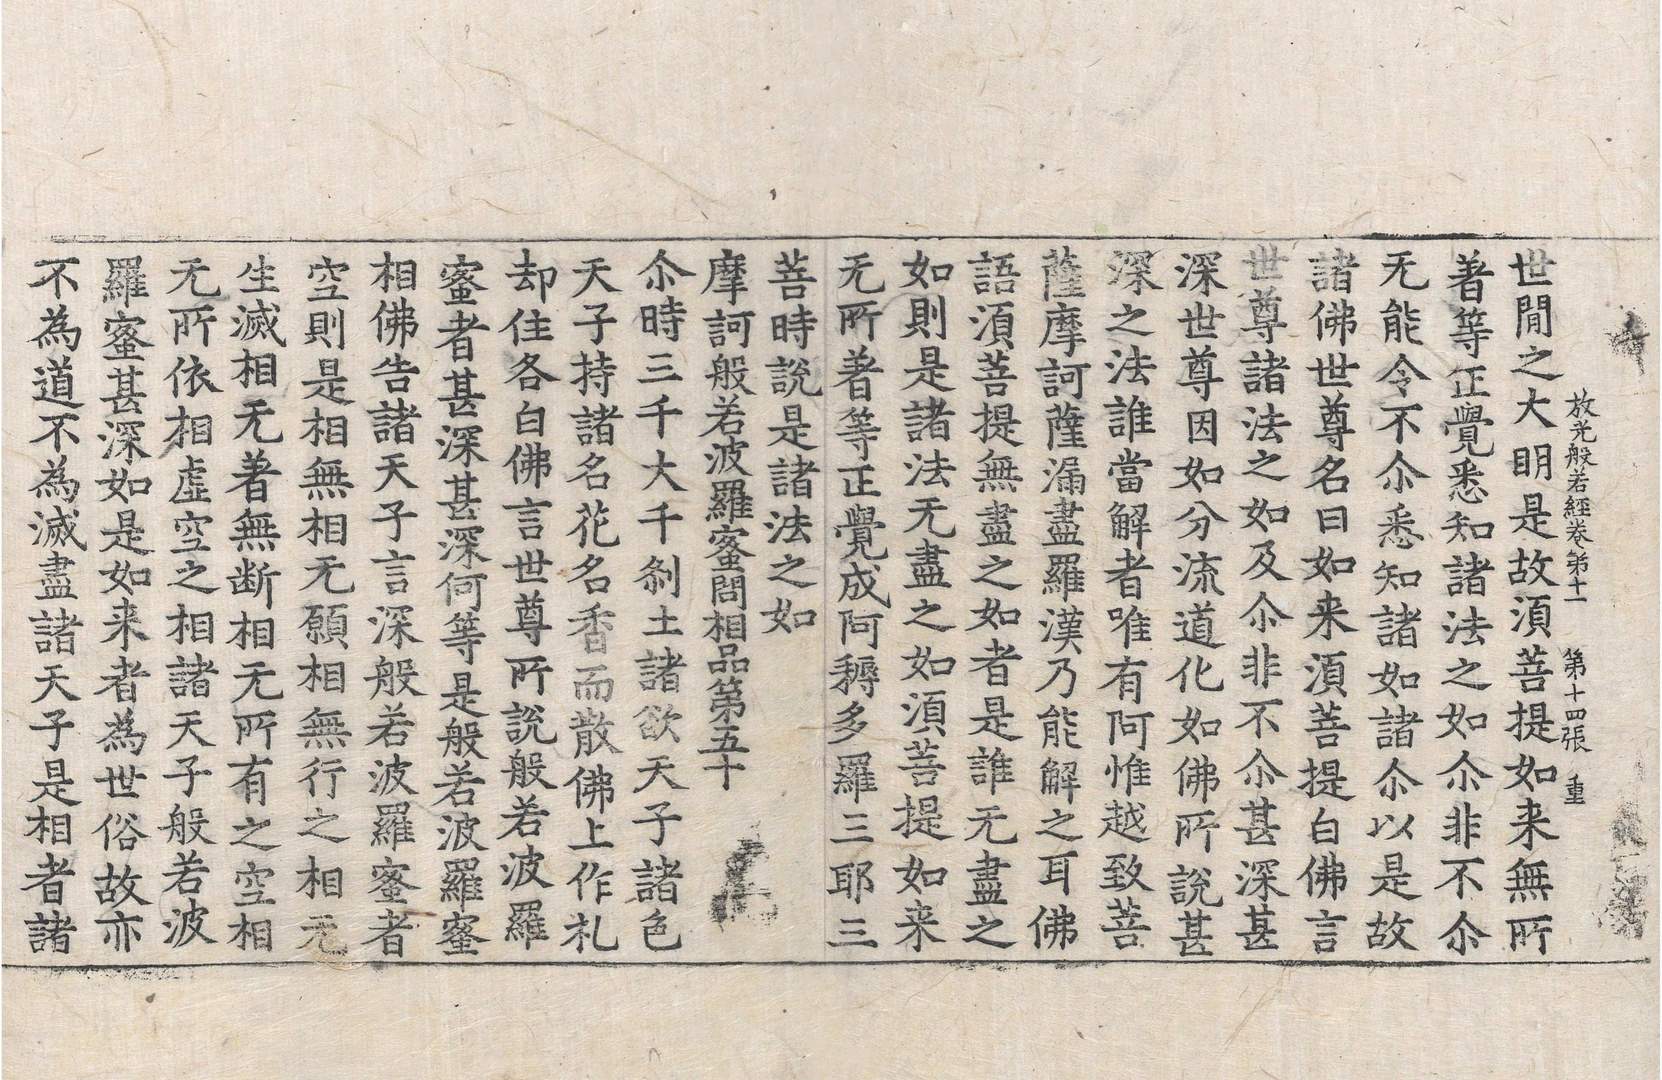 放光般若經卷第十一　第十四張　重
世間之大明是故湏菩提如来無所
著等正覺悉知諸法之如尒非不尒
无能令不尒悉知諸如諸尒以是故
諸佛世尊名曰如来湏菩提白佛言
世尊諸法之如及尒非不尒甚深甚
深世尊因如分流道化如佛所說甚
深之法誰當解者唯有阿惟越致菩
薩摩訶薩漏盡羅漢乃能解之耳佛
語湏菩提無盡之如者是誰无盡之
如則是諸法无盡之如湏菩提如来
无所著等正覺成阿耨多羅三耶三
菩時說是諸法之如
摩訶般若波羅蜜問相品第五十
尒時三千大千剎土諸欲天子諸色
天子持諸名花名香而散佛上作礼
却住各白佛言世尊所說般若波羅
蜜者甚深甚深何等是般若波羅蜜
相佛告諸天子言深般若波羅蜜者
空則是相無相无願相無行之相无
生滅相无著無断相无所有之空相
无所依相虛空之相諸天子般若波
羅蜜甚深如是如来者為世俗故亦
不為道不為滅盡諸天子是相者諸